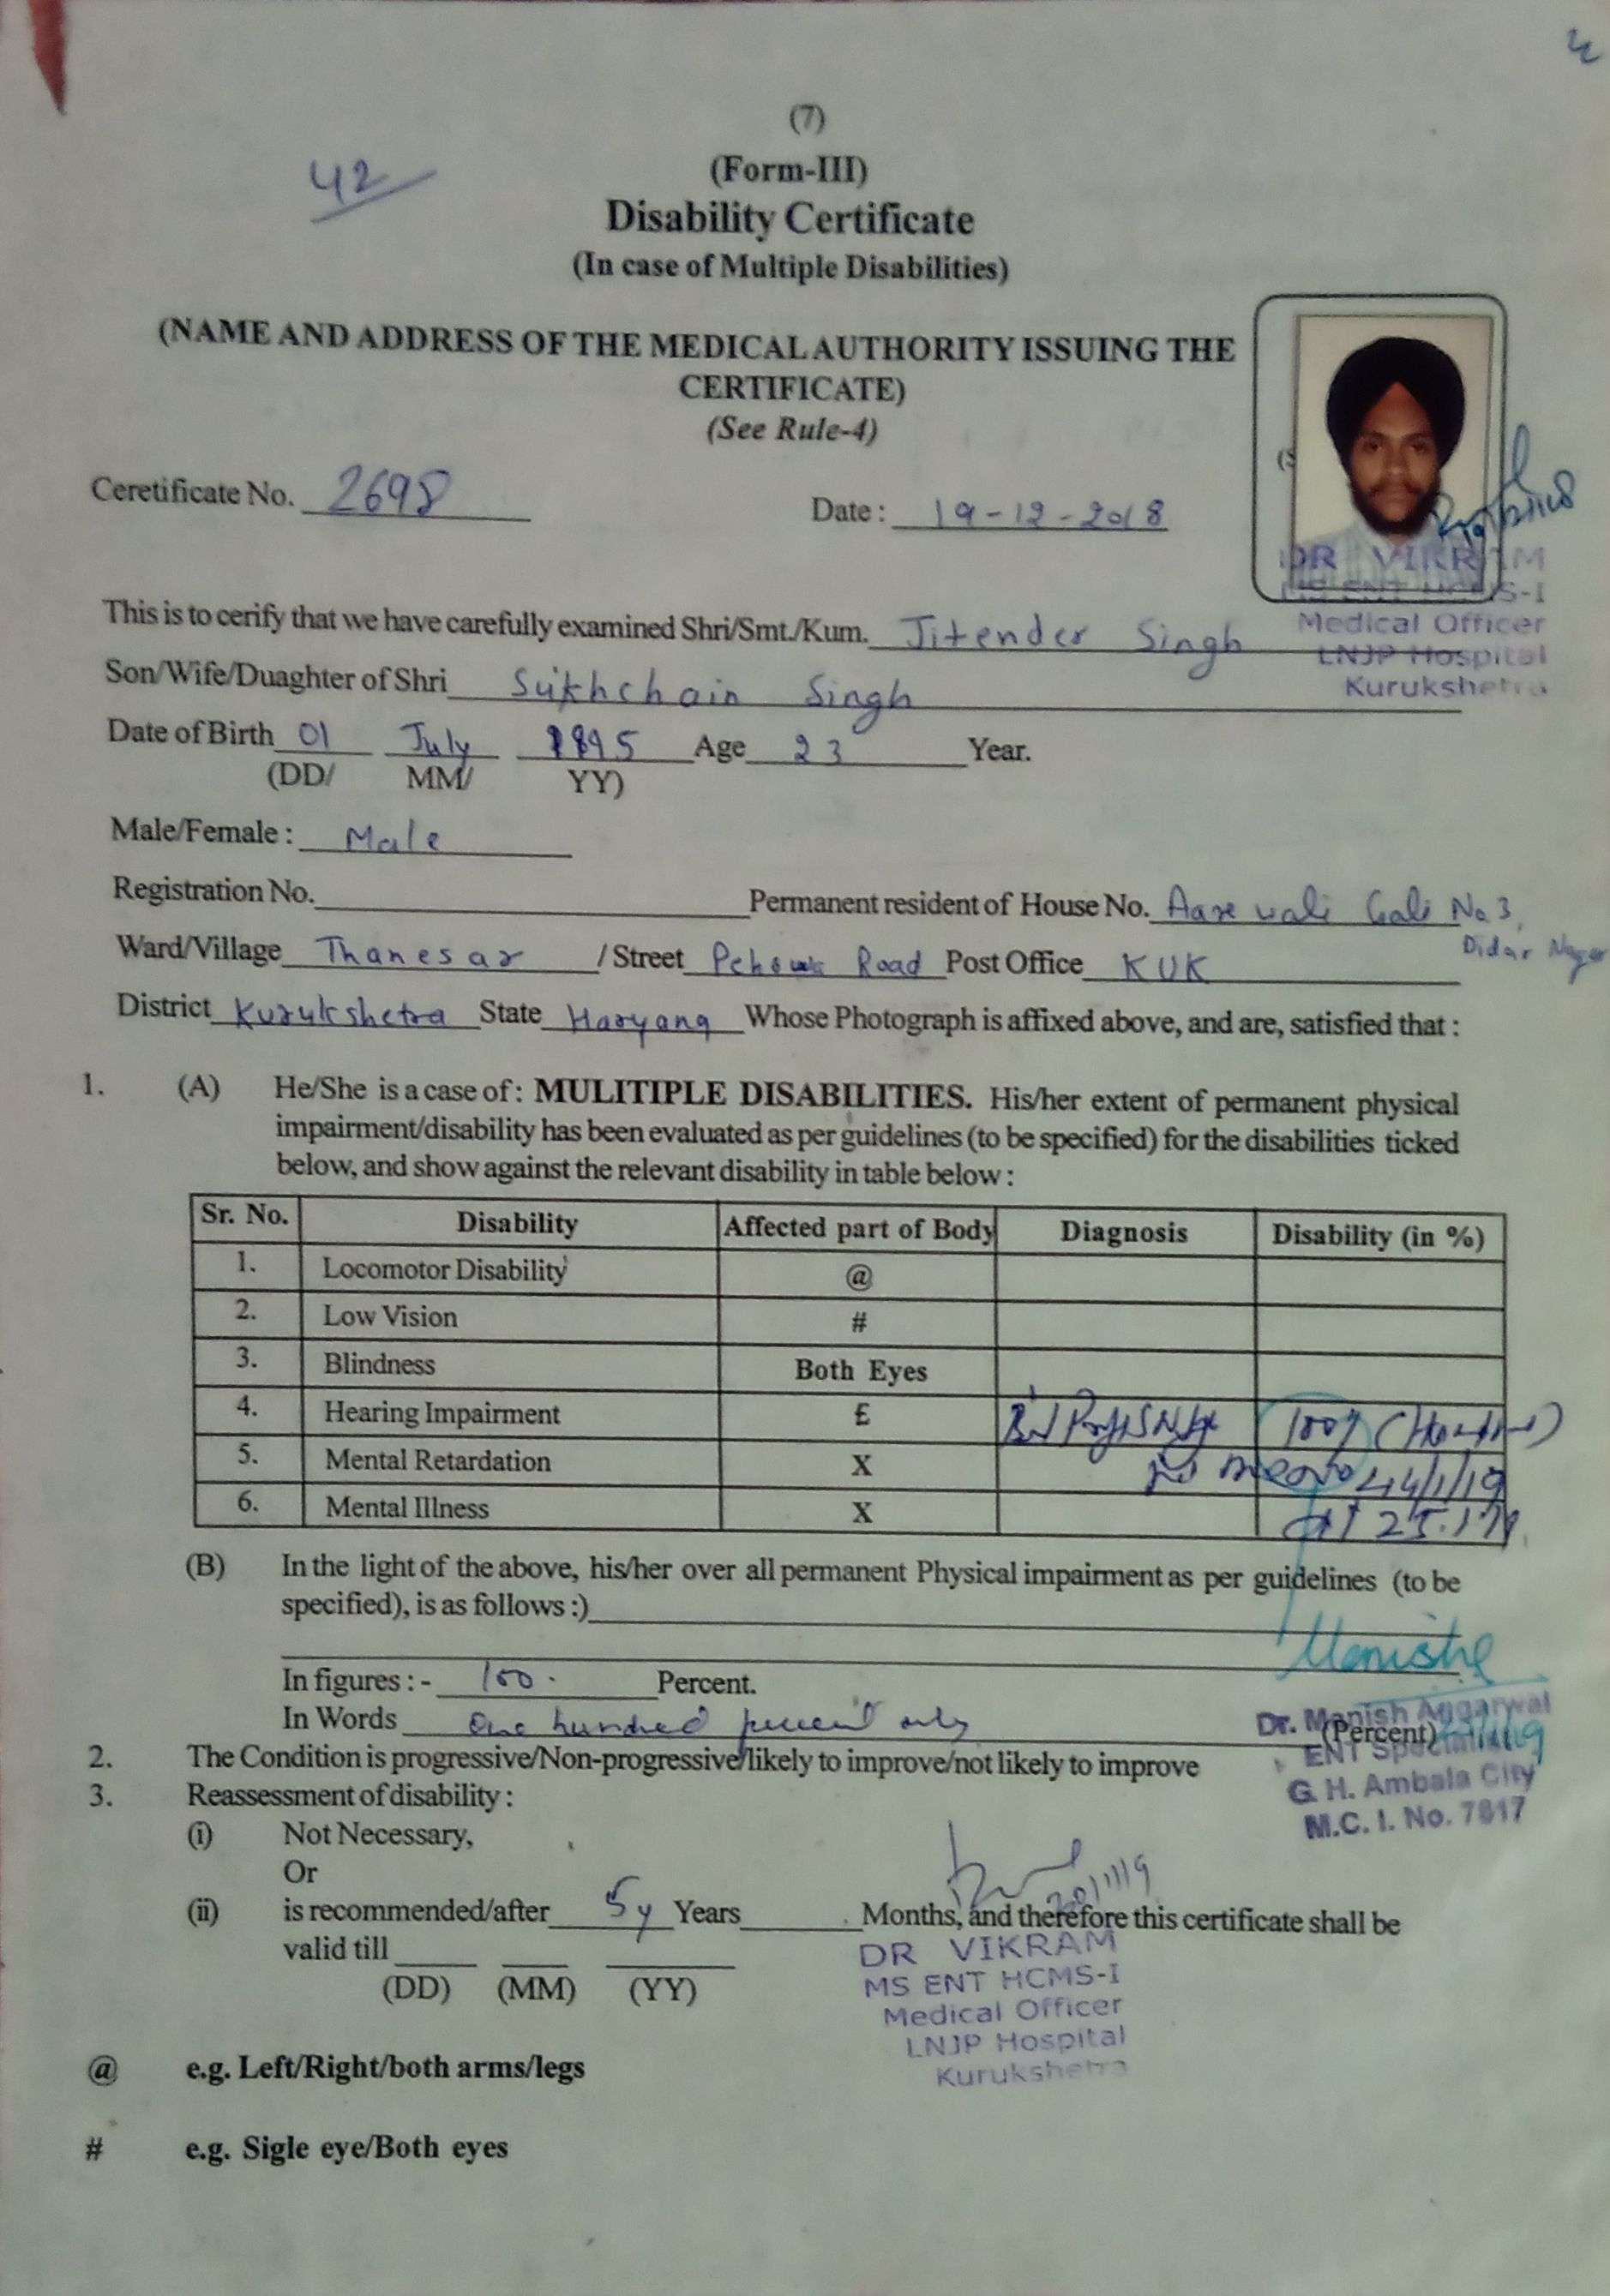 (7)
42
(Form-III)
Disability Certificate
(In case of Multiple Disabilities)
(NAME AND ADDRESS OF THE MEDICAL AUTHORITY ISSUING THE
CERTIFICATE)
(See Rule-4)
Ceretificate No. 2698
Date : 19-12-2018
DR VIKRAM
MS ENT HCMS-I
Medical Officer
LNJP Hospital
Kurukshetra
This is to cerify that we have carefully examined Shri/Smt./Kum. Jitender Singh
Son/Wife/Duaghter of Shri Sukhchain Singh
Date of Birth 01 July 1995 Age 23 Year.
(DD/ MM/ YY)
Male/Female : Male
Registration No. Permanent resident of House No. Aare wali Gali No 3,
Didar Nagar
Ward/Village Thanesar / Street Pehowa Road Post Office KUK
District Kurukshetra State Haryana Whose Photograph is affixed above, and are, satisfied that :
1. (A) He/She is a case of : MULITIPLE DISABILITIES. His/her extent of permanent physical
impairment/disability has been evaluated as per guidelines (to be specified) for the disabilities ticked
below, and show against the relevant disability in table below :
Sr. No. Disability Affected part of Body Diagnosis Disability (in %)
1. Locomotor Disability @
2. Low Vision #
3. Blindness Both Eyes
4. Hearing Impairment £ 100%
5. Mental Retardation X
6. Mental Illness X
(B) In the light of the above, his/her over all permanent Physical impairment as per guidelines (to be
specified), is as follows :)
In figures : - 100 Percent.
In Words One hundred percent only (Percent)
Dr. Manish Aggarwal
ENT Specialist
G. H. Ambala City
M.C. I. No. 7817
2. The Condition is progressive/Non-progressive/likely to improve/not likely to improve
3. Reassessment of disability :
(i) Not Necessary,
Or
(ii) is recommended/after 5y Years Months, and therefore this certificate shall be
valid till
(DD) (MM) (YY)
DR VIKRAM
MS ENT HCMS-I
Medical Officer
LNJP Hospital
Kurukshetra
@ e.g. Left/Right/both arms/legs
# e.g. Sigle eye/Both eyes